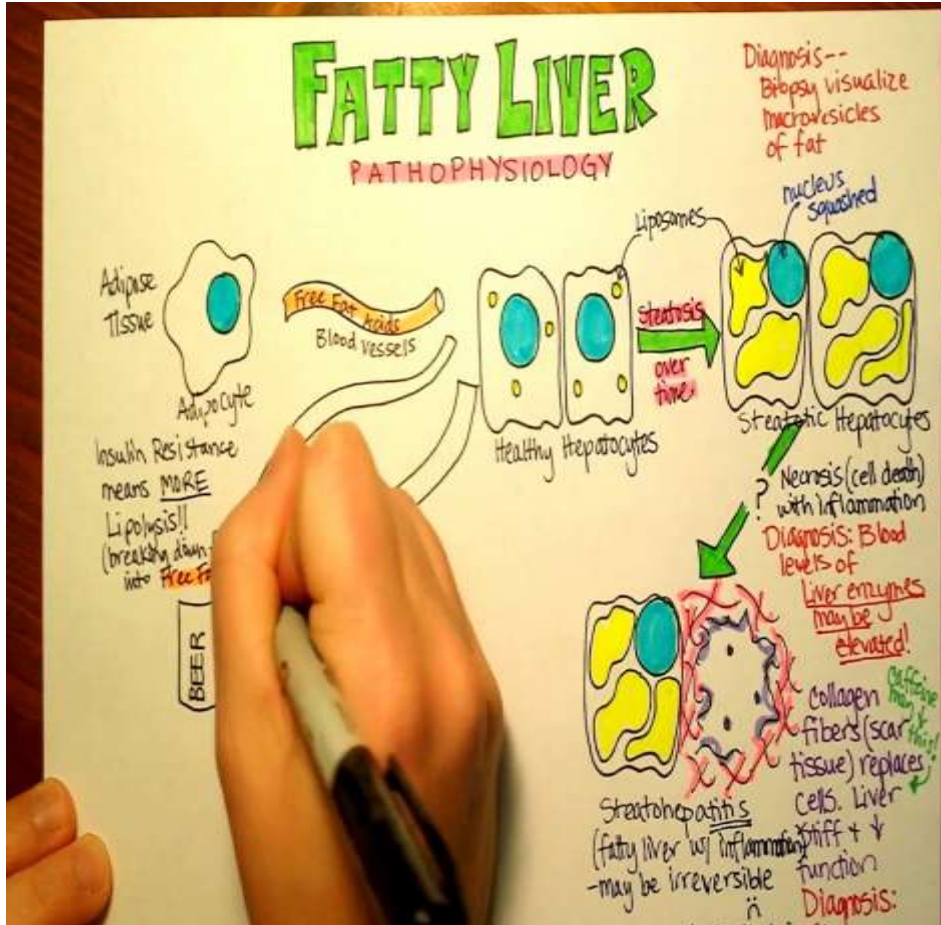 FATTY LIVER
PATHOPHYSIOLOGY
Diagnosis--
Biopsy visualize
macrovesicles
of fat
nucleus
squashed
Liposomes
Adipose
Tissue
Adipocyte
Free Fat Acids
Blood vessels
Healthy Hepatocytes
Steatosis
over
time.
Steatotic Hepatocytes
Insulin Resistance
means MORE
Lipolysis!!
(breaking down
into Free
BEER
? Necrosis (cell death)
with inflammation
Diagnosis: Blood
levels of
Liver enzymes
may be
elevated!
caffeine
may ↓
this!
collagen
fibers (scar
tissue) replaces
cells. Liver
stiff + ↓
function
Diagnosis:
Steatohepatitis
(fatty liver w/ inflammation)
-may be irreversible